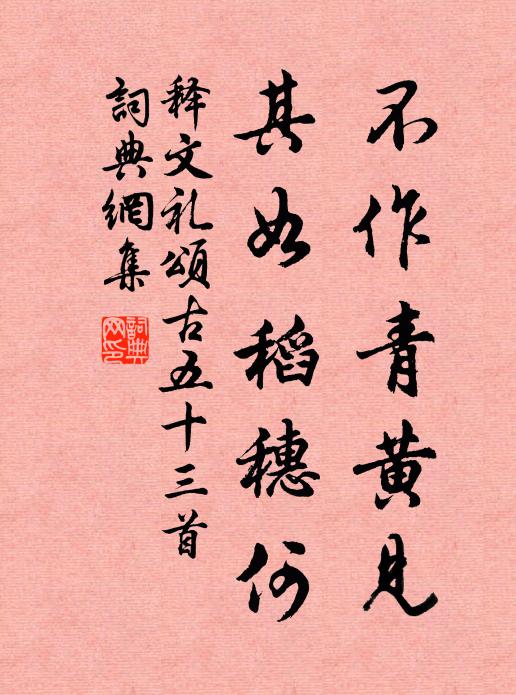 不作青黄見
其如稻穗何
释文礼頌古五十三首
詞典網集
詞典网印